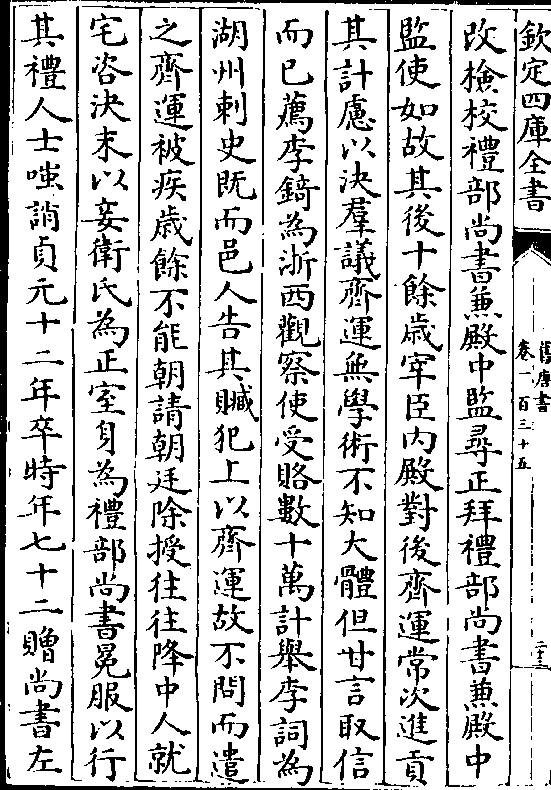 欽定四庫全書
舊唐書
卷一百三十五
二十三
改檢校禮部尚書兼殿中監尋正拜禮部尚書兼殿中
監使如故其後十餘歲宰臣内殿對後齊運常次進貢
其計慮以決羣議齊運無學術不知大體但甘言取信
而已薦李錡為浙西觀察使受賂數十萬計舉李詞為
湖州刺史既而邑人告其贓犯上以齊運故不問而遣
之齊運被疾歲餘不能朝請朝廷除授往往降中人就
宅咨決末以妾衛氏為正室身為禮部尚書冕服以行
其禮人士嗤誚貞元十二年卒時年七十二贈尚書左